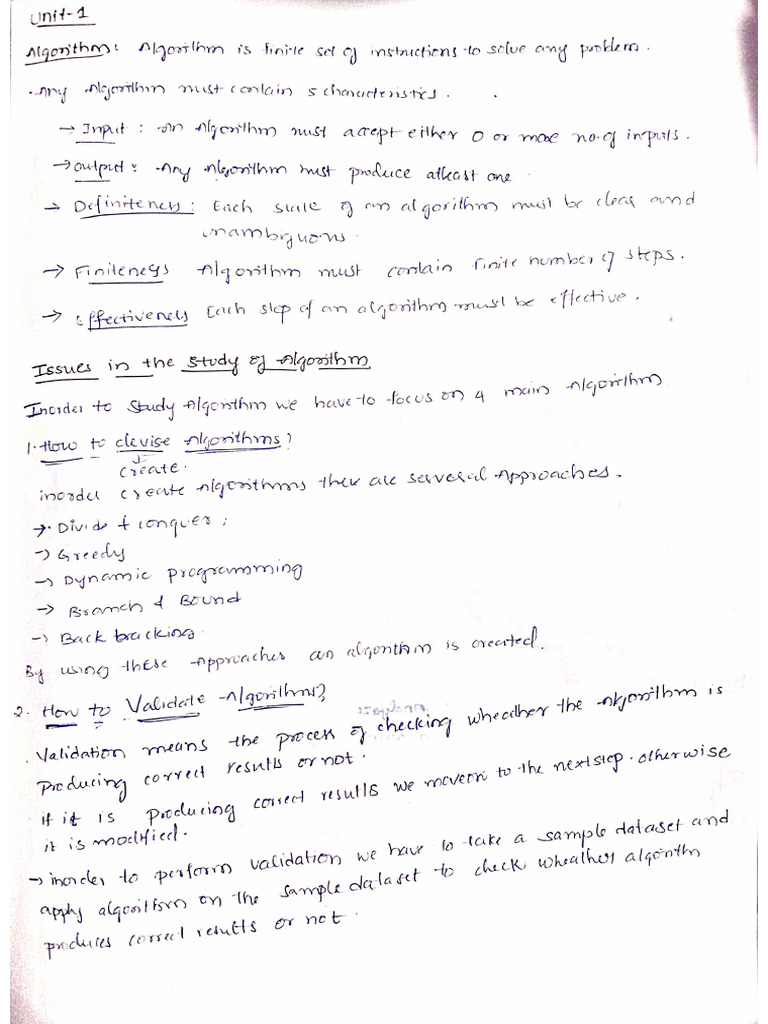 Unit-1
Algorithm: Algorithm is finite set of instructions to solve any problem.
Any Algorithm must contain 5 characteristics.
→ Input: an Algorithm must accept either 0 or more no. of inputs.
→ output: Any Algorithm must produce atleast one
→ Definiteness: Each state of an algorithm must be clear and
unambiguous.
→ Finiteness Algorithm must contain finite number of steps.
→ Effectiveness Each step of an algorithm must be effective.
Issues in the study of Algorithm
Inorder to study Algorithm we have to focus on 4 main Algorithm
1. How to devise Algorithms?
create.
inorder create Algorithms there are serveral Approaches.
→ Divide & conquer:
→ Greedy
→ Dynamic programming
→ Branch & Bound
→ Back tracking.
By using these Approaches an algorithm is created.
2. How to Validate Algorithms?
Validation means the process of checking wheather the Algorithm is
producing correct results or not.
if it is producing correct results we moveon to the next step. otherwise
it is modified.
→ inorder to perform validation we have to take a sample dataset and
apply algorithm on the sample dataset to check wheather algorithm
produces correct results or not.